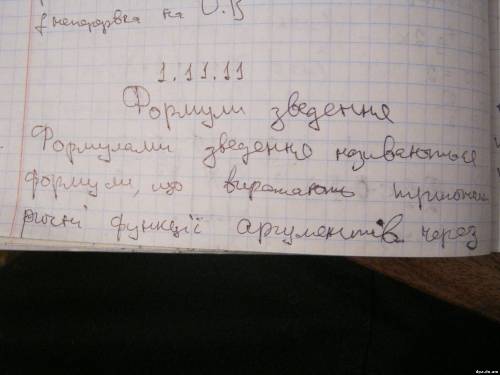 на О.В
1.11.11
Формули зведення
Формулами зведення називаються
формули, що виражають тригономет
ричні функції аргументів через